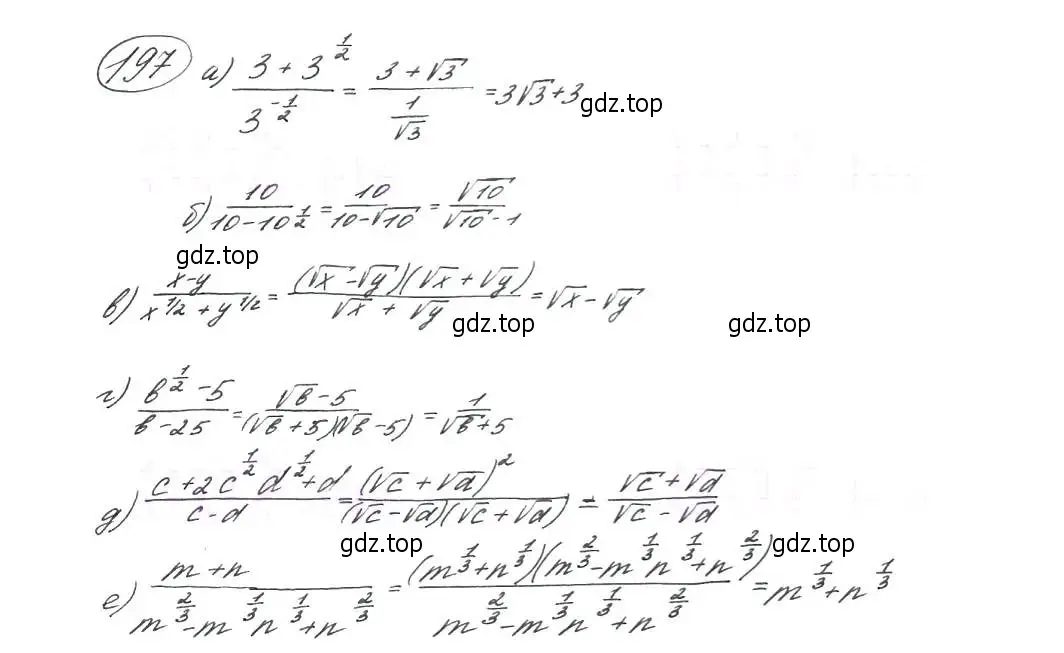 197 а) (3 + 3^(1/2)) / 3^(-1/2) = (3 + √3) / (1/√3) = 3√3 + 3
gdz.top
б) 10 / (10 - 10^(1/2)) = 10 / (10 - √10) = √10 / (√10 - 1)
gdz.top
в) (x - y) / (x^(1/2) + y^(1/2)) = (√x - √y)(√x + √y) / (√x + √y) = √x - √y
gdz.top gdz.top
г) (в^(1/2) - 5) / (в - 25) = (√в - 5) / ((√в + 5)(√в - 5)) = 1 / (√в + 5)
д) (c + 2c^(1/2) d^(1/2) + d) / (c - d) = (√c + √d)^2 / ((√c - √d)(√c + √d)) = (√c + √d) / (√c - √d)
gdz.top gdz.top
е) (m + n) / (m^(2/3) - m^(1/3) n^(1/3) + n^(2/3)) = (m^(1/3) + n^(1/3))(m^(2/3) - m^(1/3) n^(1/3) + n^(2/3)) / (m^(2/3) - m^(1/3) n^(1/3) + n^(2/3)) = m^(1/3) + n^(1/3)